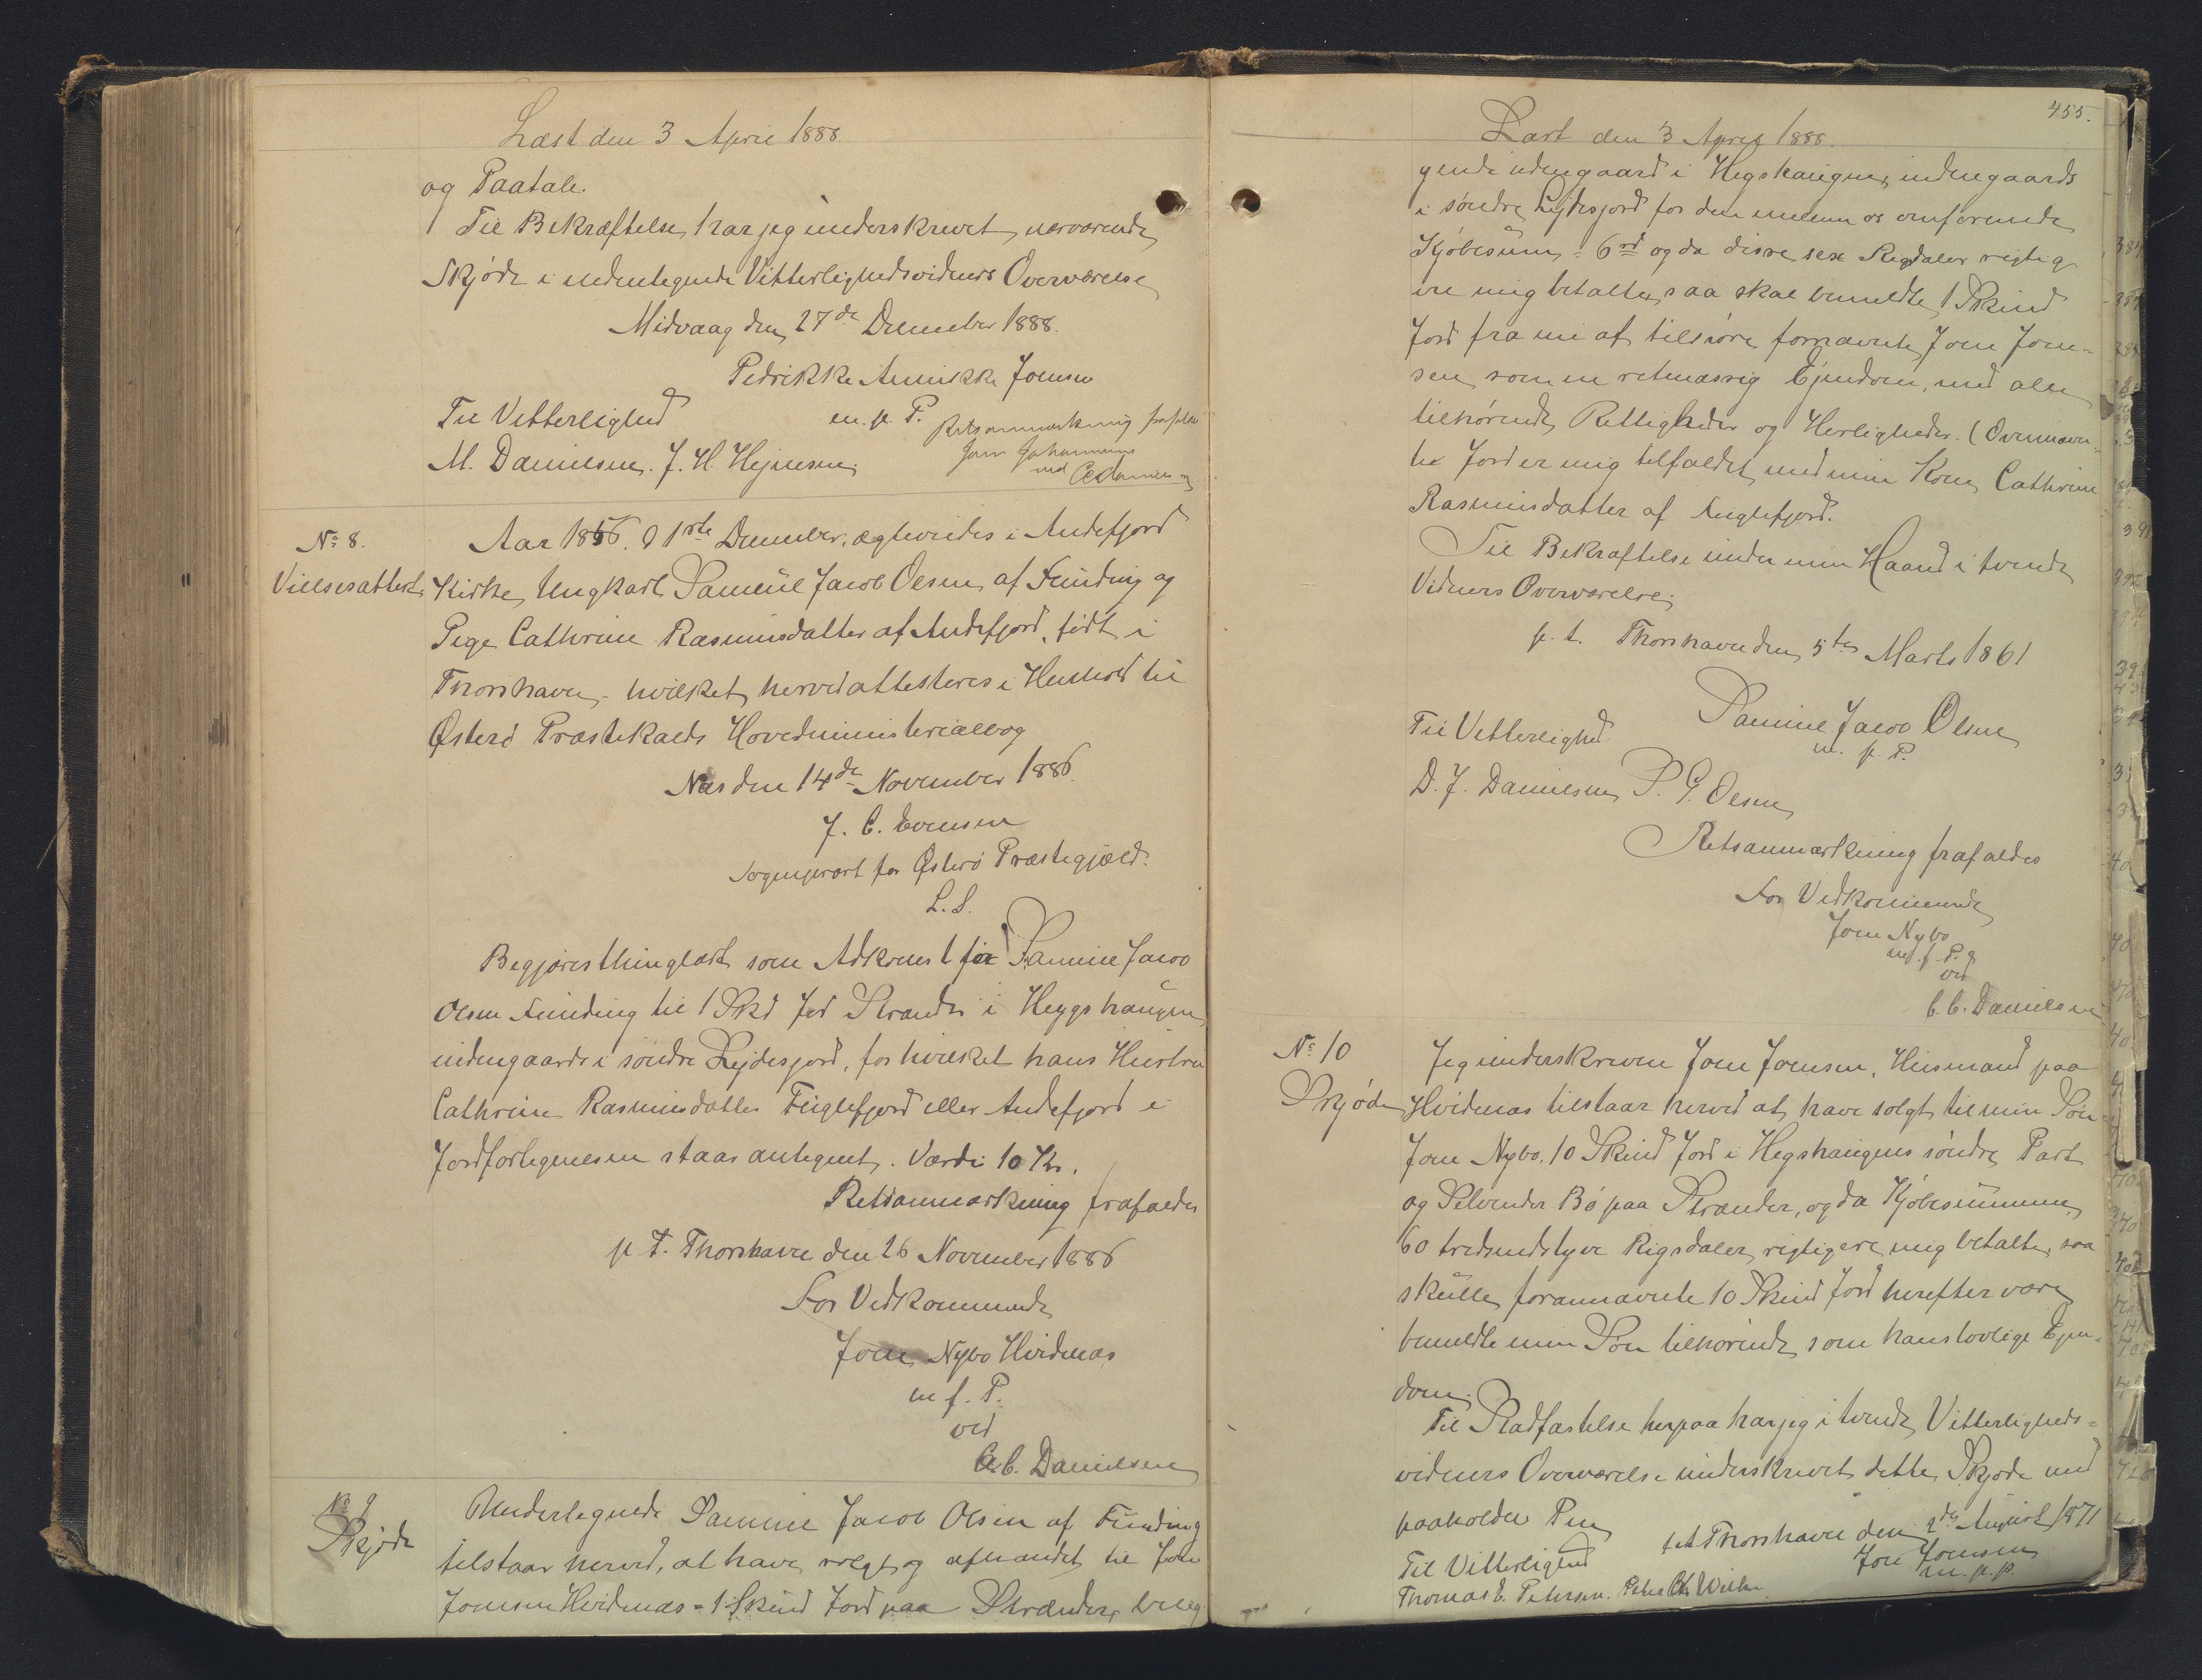 Læst den 3 April 1888.
og Paatale.
Til Bekræftelse har jeg underskrevet nærværende
Skjøde i undertegnede Vitterlighedsvidners Overværelse
Midvaag den 27de December 1888.
Pedrikke Annikke Joensen
Til Vitterlighed m. p. P.
Retsanmærkning frafaldes
M. Danielsen. J. H. Hejnesen.
Joen Johannesen
ved
No 8.
Vielsesattest
Aar 1856. d 1ste December, ægteviedes i Andefjord
Kirke, Ungkarl Samuel Jacob Olsen af Funding og
Pige Cathrine Rasmusdatter af Andefjord, født i
Thorshavn, - hvilket herved attesteres i Henhold til
Østerø Præstekalds Hovedministerialbog
Næs den 14de November 1886.
J. C. Evensen
Sognepræst for Østerø Præstegjæld.
L. S.
Begjæres thinglæst som Adkomst for Samuel Jacob
Olsen Funding til 1 Skd Jord Strænder i Heygshaugen,
indengaards i søndre Lejdesjord, for hvilket hans Hustru
Cathrine Rasmusdatter Fuglefjord eller Andefjord i
Jordfortegnelsen staar antegnet. Værdi 10 Kr.
Retsanmærkning frafaldes
p. t. Thorshavn den 26 November 1886
For Vedkommende
Joen Nybo Hvidenæs
m f. P.
ved
C. C. Danielsen
No 9
Skjøde
Undertegnede Samuel Jacob Olsen af Funding
tilstaar herved, at have solgt og afhændet til Joen
Joensen Hvidenæs = 1 Skind Jord paa Strænder, belig
455.
Læst den 3 April 1888.
gende udengaard i Hegshaugen, indengaards
i søndre Lejdesjord for den imellem os omførende
Kjøbesum = 6 rd og da disse sex Rigsdaler rigtig
ere mig betalte, saa skal bemeldte 1 Skind
Jord fra nu af tilhøre fornævnte Joen Joen-
sen som en retmæssig Ejendom, med alle
tilhørende Rettigheder og Herligheder. (Ovennævn-
te Jord er mig tilfaldet med min Kone Cathrine
Rasmusdatter af Fuglefjord.
Til Bekræftelse under min Haand i tvende
Vidners Overværelse.
p. t. Thorshavn den 5te Marts 1861
Samuel Jacob Olsen
Til Vitterlighed. m. p. P.
D. J. Danielsen P. G. Olsen
Retsanmærkning frafaldes
For Vedkommende
Joen Nybo
m. f. P.
ved
C. C. Danielsen
No 10
Skjøde
Jeg underskreven Joen Joensen, Huusmand paa
Hvidenæs tilstaar herved at have solgt til min Søn
Joen Nybo, 10 Skind Jord i Hegshaugens søndre Part
og Selvender Bø paa Strænder, og da Kjøbesummen
60 tredsindstyve Rigsdaler, rigtig ere mig betalte, saa
skulle forannævnte 10 Skind Jord herefter være
bemeldte min Søn tilhørende som hans lovlige Ejen-
dom.
Til Stadfæstelse herpaa har jeg i tvende Vitterligheds-
vidners Overværelse underskrevet dette Skjøde med
paaholden Pen
p. t. Thorshavn den 2de August 1871
Til Vitterlighed Joen Joensen
m. p. P.
Thomas E. Petersen. Peter Chr Weihe